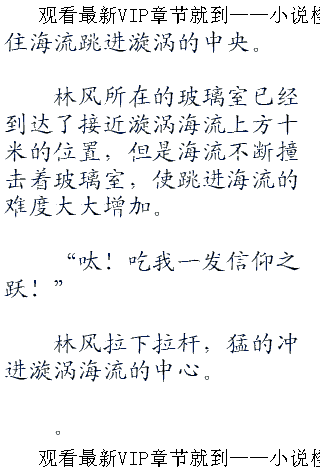 观看最新VIP章节就到——小说
住海流跳进漩涡的中央。
林风所在的玻璃室已经
到达了接近漩涡海流上方十
米的位置，但是海流不断撞
击着玻璃室，使跳进海流的
难度大大增加。
“呔！吃我一发信仰之
跃！”
林风拉下拉杆，猛的冲
进漩涡海流的中心。
。
观看最新VIP章节就到——小说